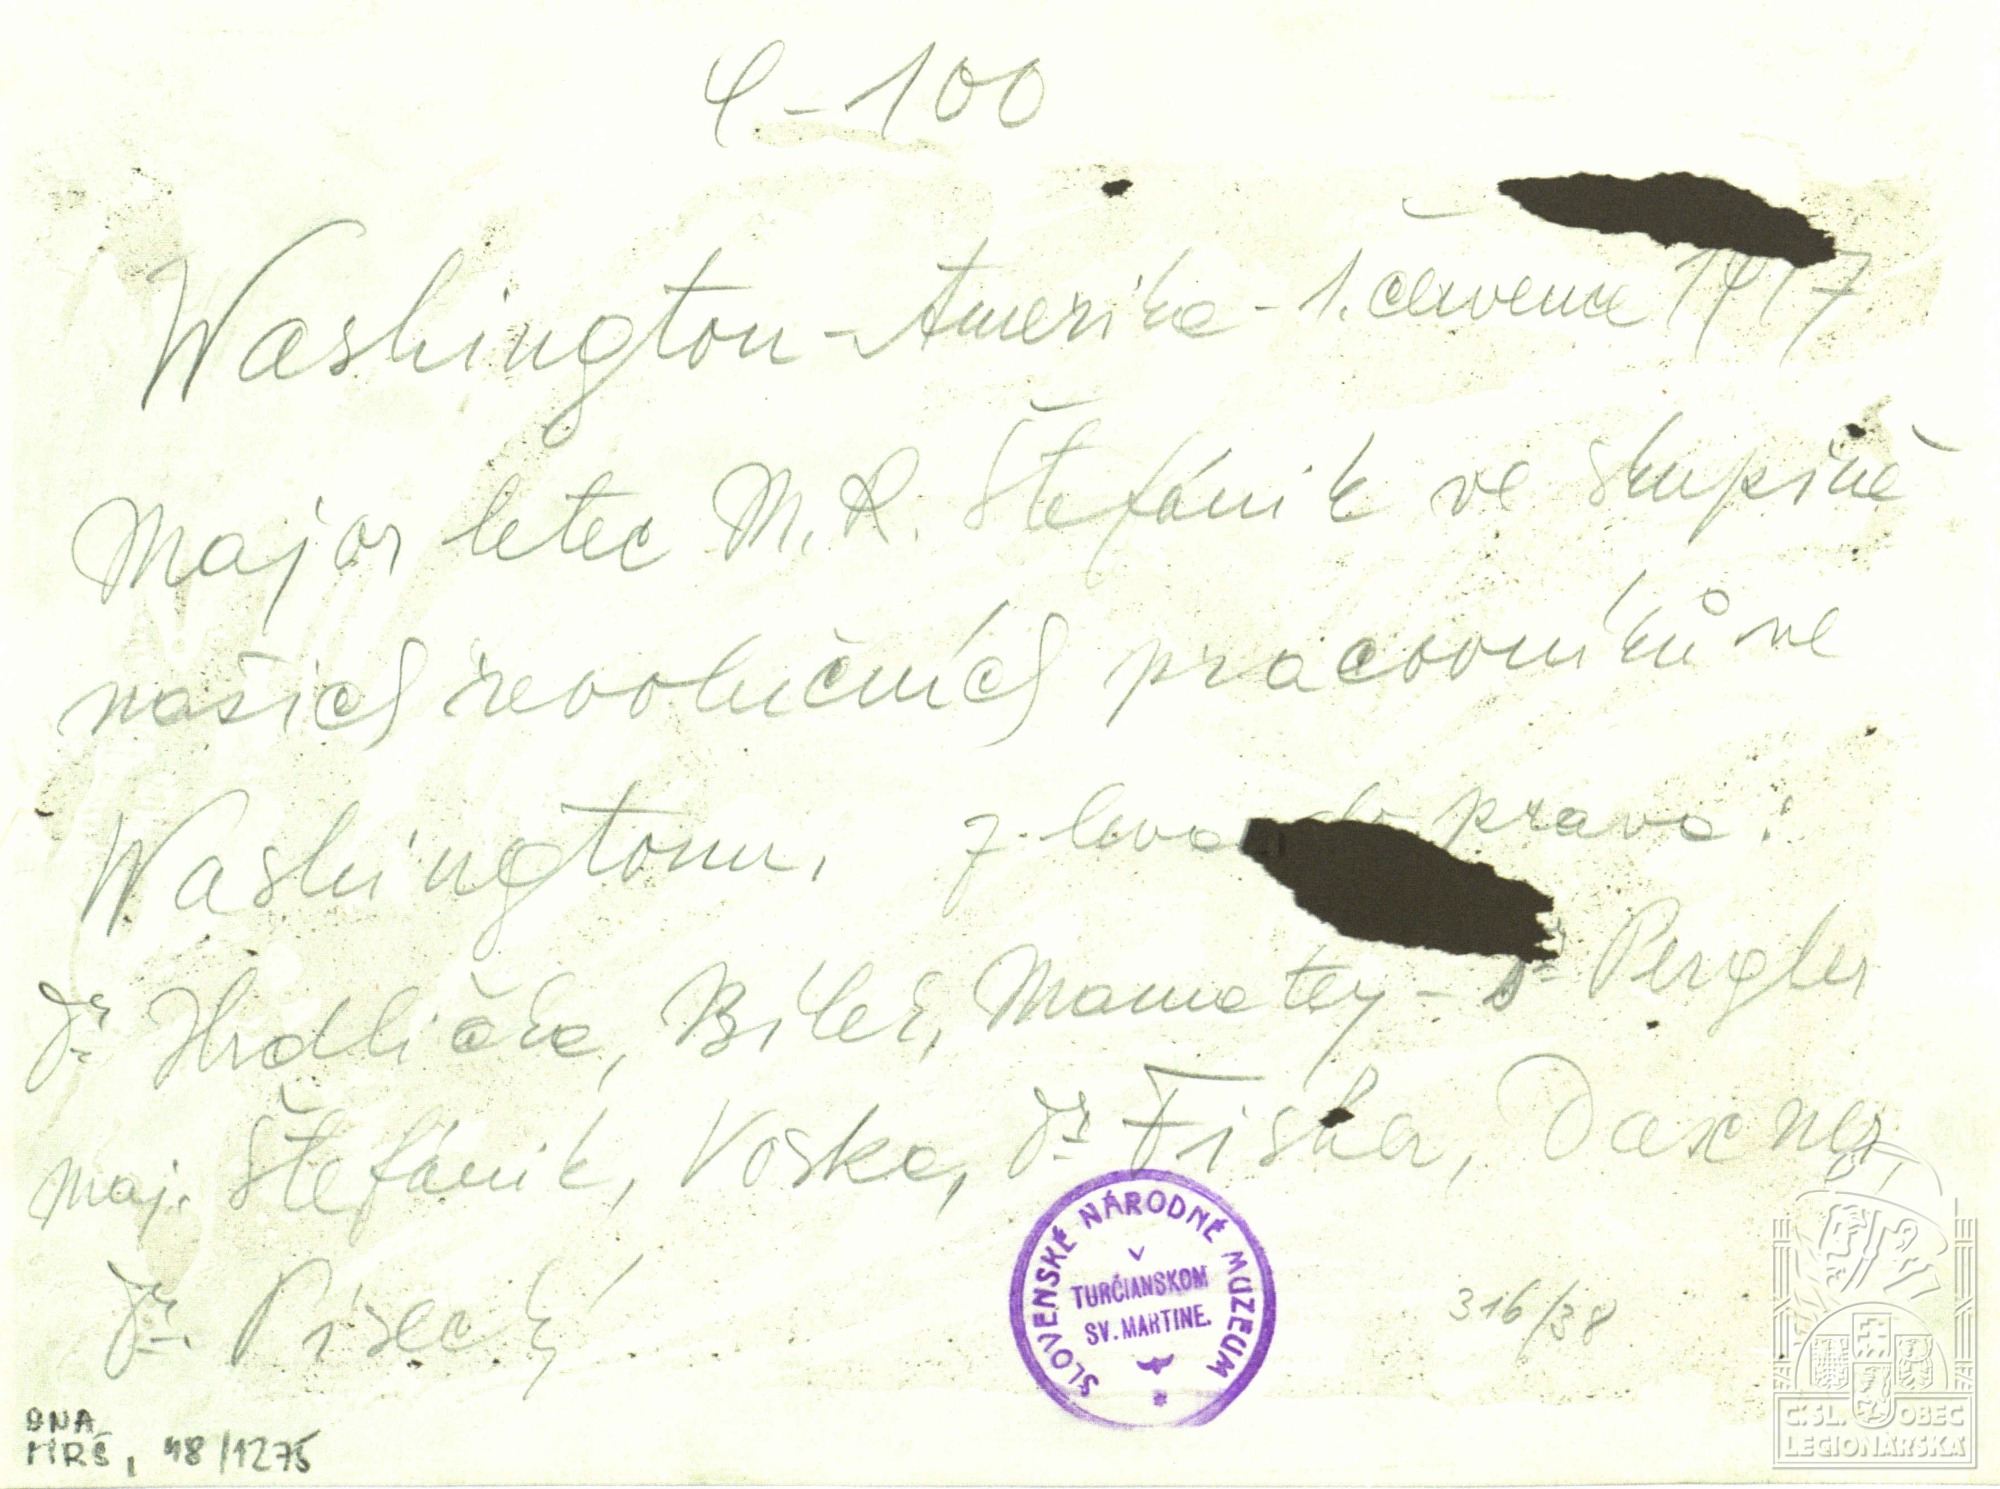 4-100
Washington - Amerika - 1. července 1917
Major letec M. R. Štefánik ve skupině
našich revolučních pracovníků ve
Washingtonu. Z leva do prava:
Dr. Hrdlička, Bílek, Mamatey - Dr Pergler
maj. Štefánik, Voska, Dr Fisher, Daxner,
Dr. Písecký
SLOVENSKÉ NÁRODNÉ MUZEUM
V
TURČIANSKOM
SV. MARTINE.
*
316/38
BNA
MRŠ, 48/1275
Č. SL. OBEC
LEGIONÁŘSKÁ